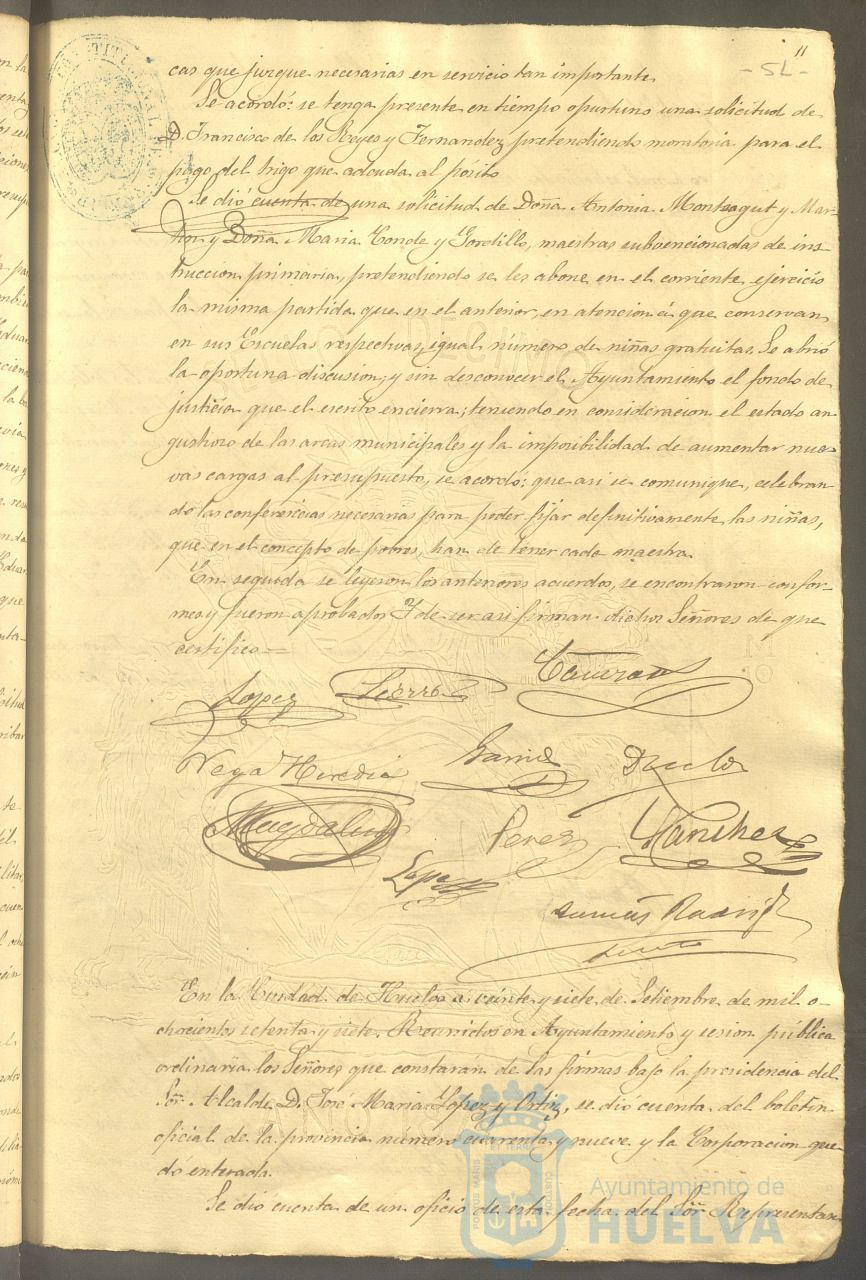 11
- 51 -
cas que juzgue necesarias en servicio tan importante.
Se acordó: se tenga presente en tiempo oportuno una solicitud de
D. Francisco de los Reyes y Fernandez pretendiendo moratoria para el
pago del trigo que adeuda al pósito
Se dió cuenta de una solicitud de Doña Antonia Montsagut y Mar-
tin y Doña Maria Conde y Gordillo, maestras subvencionadas de ins-
truccion primaria, pretendiendo se les abone en el corriente ejercicio
la misma partida que en el anterior, en atencion á que conservan
en sus Escuelas respectivas, igual número de niñas gratuitas. Se abrió
la oportuna discusion, y sin desconocer el Ayuntamiento el fondo de
justicia que el escrito encierra; teniendo en consideracion el estado an
gustioso de las arcas municipales y la imposibilidad de aumentar nue-
vas cargas al presupuesto, se acordó: que asi se comunique, celebran-
do las conferencias necesarias para poder fijar definitivamente las niñas,
que en el concepto de pobres, han de tener cada maestra.
En seguida se leyeron los anteriores acuerdos, se encontraron confor-
mes y fueron aprobados. Y de ser asi firman dichos Señores de que
certifico=
Lopez
Vega Heredia Garcia
Perez Sanchez
Lopez
Tomás
En la Ciudad de Huelva á veinte y siete de Setiembre de mil o-
chocientos setenta y siete. Reunidos en Ayuntamiento y sesion pública
ordinaria los Señores que constarán de las firmas bajo la presidencia del
Sōr. Alcalde D. José Maria Lopez y Ortiz, se dió cuenta del boletin
oficial de la provincia número cuarenta y nueve y la Corporacion que
dó enterada.
Se dió cuenta de un oficio de esta fecha del Sōr. Representan-
PORTUS MARIS ET TERRE CUSTODIA
Ayuntamiento de
HUELVA